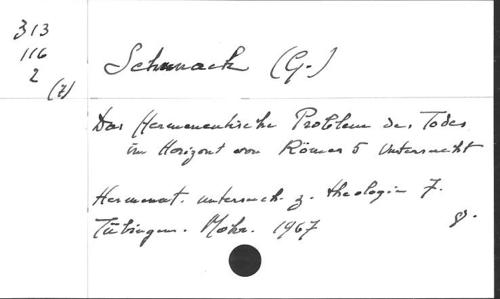 313
116
2
(7)
Schunack (G.)
Das Hermeneutische Problem des Todes
im Horizont von Römer 5 untersucht
Hermeneut. untersuch. z. theologie 7.
Tübingen. Mohr. 1967
8.